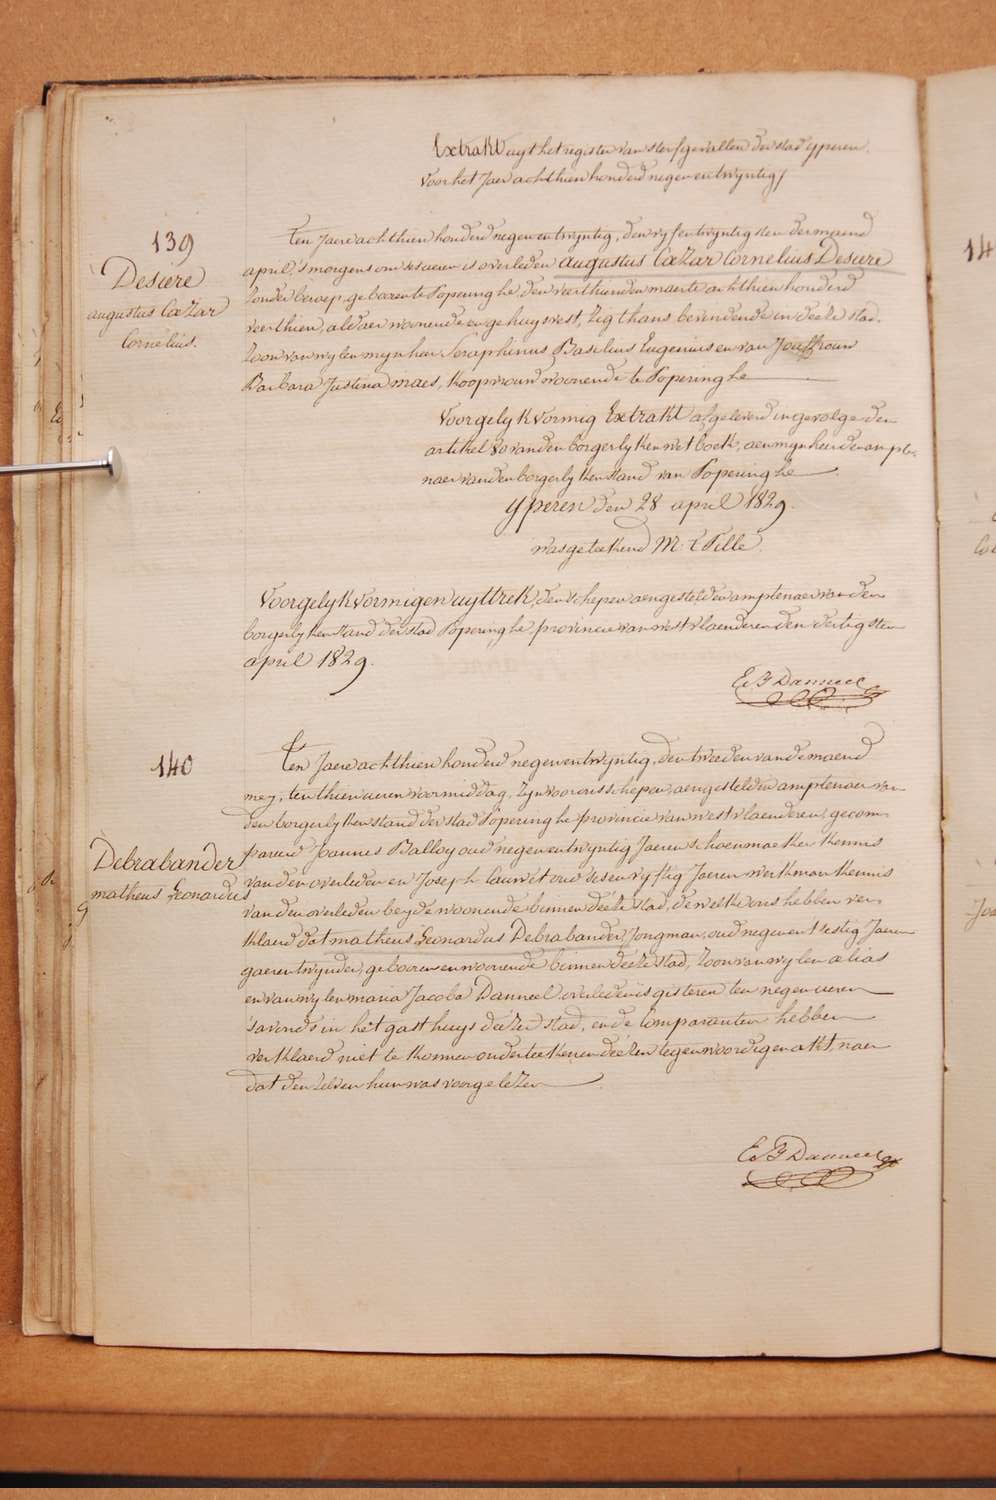 Extrakt uyt het register van sterfgevallen der stad yperen.
voor het Jaer achthien honderd negen entwyntig /
139
Ten Jaere achthien honderd negen entwyntig, den vyfentwyntigsten der maend
Desiere
april, 's morgens om ses ueren is overleden augustus Cæzar Cornelius Desiere
augustus Cæzar
Zonder beroep, geboren te Poperinghe, den veerthienden maerte achthien honderd
Cornelius.
veerthien, aldaer woonende en gehuysvest, Zig thans bevindende in deeze stad.
Zoon van wylen mynheer Seraphinus Basilius Eugenius en van Joaffrouw
Barbara Justina maes, koopvrouw woonende te Poperinghe
Voorgelykvormig Extrakt afgeleverd ingevolge den
artikel 80 van den borgerlyken wet boek, aen mynheer den ampte-
naer van den borgerlyken stand van Poperinghe
yperen den 28 april 1829.
was geteekend M. t Pille.
Voorgelykvormigen uyttrek, den schepen aengestelden amptenaer van den
borgerlyken stand der stad Poperinghe, provincie van westvlaenderen den dertigsten
april 1829.
E F Danneel
140
Ten Jaere achthien honderd negen entwyntig, den tweeden van de maend
mey, ten thien ueren voormiddag, Zyn voor ons schepen, aengestelden amptenaer van
den borgerlyken stand der stad Poperinghe provincie van westvlaenderen, gecom-
Debrabander
pareerd Joannes Balloy oud negenentwyntig Jaeren schoenmaeker kennis
matheus Leonardus
van den overleden en Joseph Cauwet oud sesenvyftig Jaeren werkman kennis
van den overleden beyde woonende binnen deeze stad, de welke ons hebben ver-
klaerd dat matheus Leonardus Debrabander, Jongman, oud negenentsestig Jaeren
gaerentwynder, gebooren en woonende binnen deeze stad, Zoon van wylen elias
en van wylen maria Jacoba Danneel overleden is gisteren ten negen ueren
's avonds in het gasthuys deezer stad, en de Comparanten hebben
verklaerd niet te konnen onderteekenen deezen tegenwoordigen akt, naer
dat den zelven hun was voorgelezen
E F Danneel